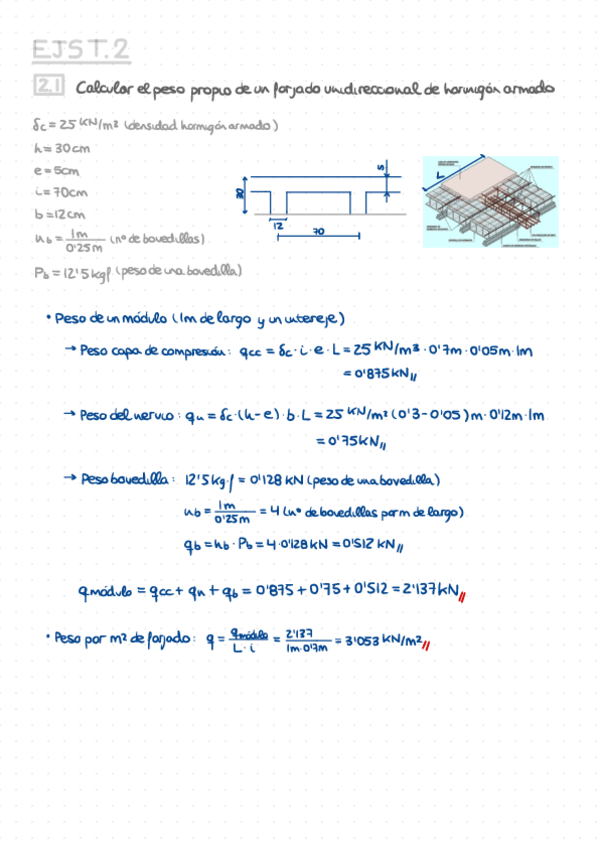 EJST.2
2.1 Calcular el peso propio de un forjado unidireccional de hormigón armado
δc = 25 KN/m² (densidad hormigón armado)
h = 30cm
e = 5cm
i = 70cm
b = 12cm
nb = 1m / 0'25m (nº de bovedillas)
Pb = 12'5 kgf (peso de una bovedilla)
30
5
12
70
L
• Peso de un módulo (1m de largo y un intereje)
→ Peso capa de compresión: qcc = δc · i · e · L = 25 KN/m³ · 0'7m · 0'05m · 1m
= 0'875 KN //
→ Peso del nervio: qn = δc · (h-e) · b · L = 25 KN/m² (0'3-0'05)m · 0'12m · 1m
= 0'75 KN //
→ Peso bovedilla: 12'5 kg·f = 0'128 KN (peso de una bovedilla)
nb = 1m / 0'25m = 4 (nº de bovedillas por m de largo)
qb = nb · Pb = 4 · 0'128 KN = 0'512 KN //
qmódulo = qcc + qn + qb = 0'875 + 0'75 + 0'512 = 2'137 KN //
• Peso por m² de forjado: q = qmódulo / L · i = 2'137 / 1m · 0'7m = 3'053 KN/m² //